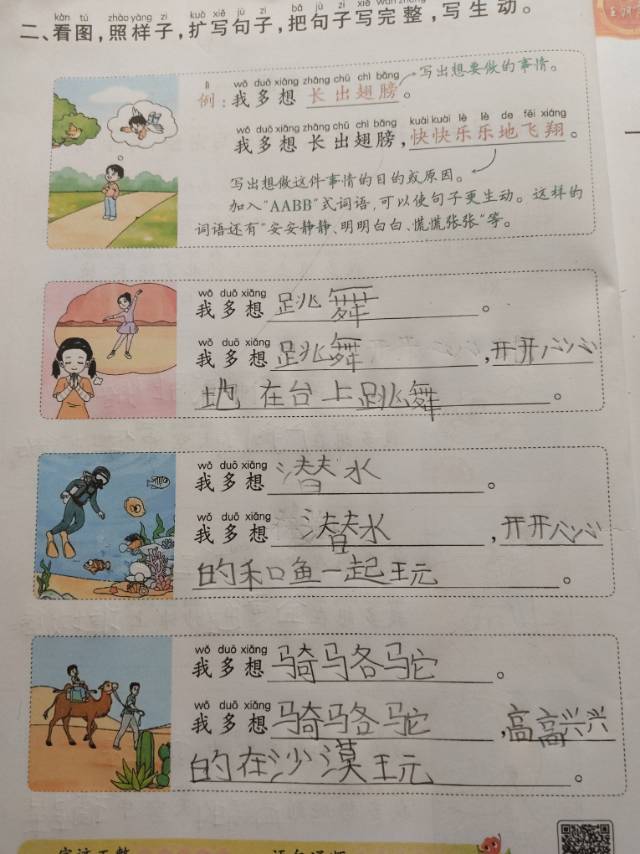 kàn tú zhào yàng zi kuò xiě jù zi bǎ jù zi xiě wán zhěng
二、看图,照样子,扩写句子,把句子写完整,写生动。
wǒ duō xiǎng zhǎng chū chì bǎng
例:我多想长出翅膀。
写出想要做的事情。
wǒ duō xiǎng zhǎng chū chì bǎng kuài kuài lè lè de fēi xiáng
我多想长出翅膀,快快乐乐地飞翔。
写出想做这件事情的目的或原因。
加入“AABB”式词语,可以使句子更生动。这样的
词语还有“安安静静、明明白白、慌慌张张”等。
wǒ duō xiǎng
我多想跳舞。
wǒ duō xiǎng
我多想跳舞,开开心心
地在台上跳舞。
wǒ duō xiǎng
我多想潜水。
wǒ duō xiǎng
我多想潜水,开开心心
的和鱼一起玩。
wǒ duō xiǎng
我多想骑骆驼。
wǒ duō xiǎng
我多想骑骆驼,高高兴兴
的在沙漠玩。